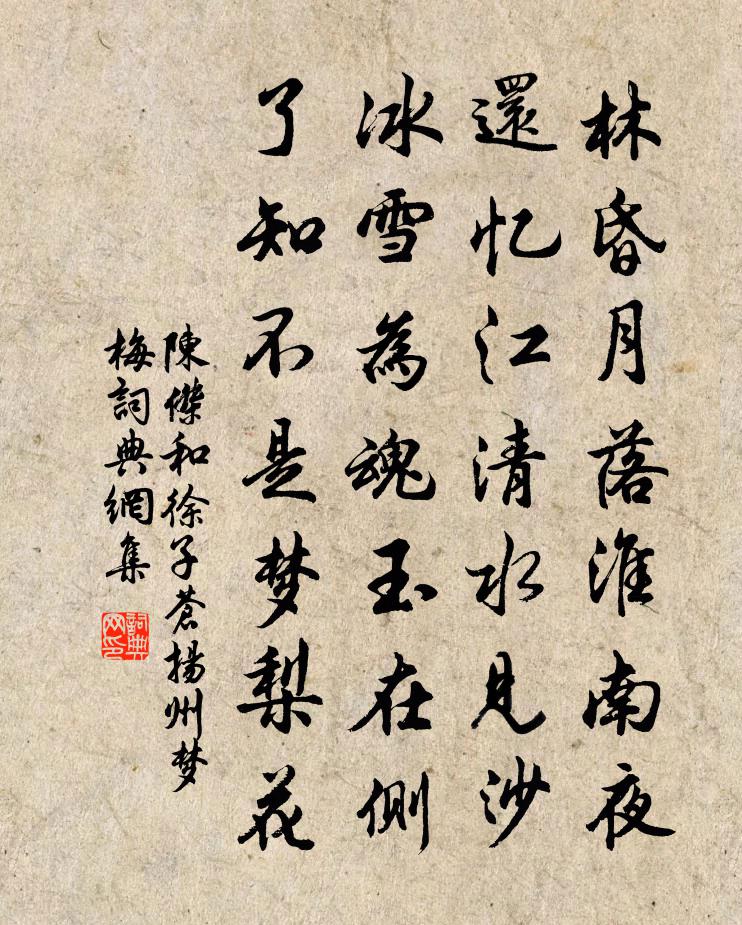 林昏月落淮南夜
還忆江清水见沙
冰雪為魂玉在側
了知不是梦梨花
陳傑和徐子蒼揚州梦
梅詞典網集
詞典
网印